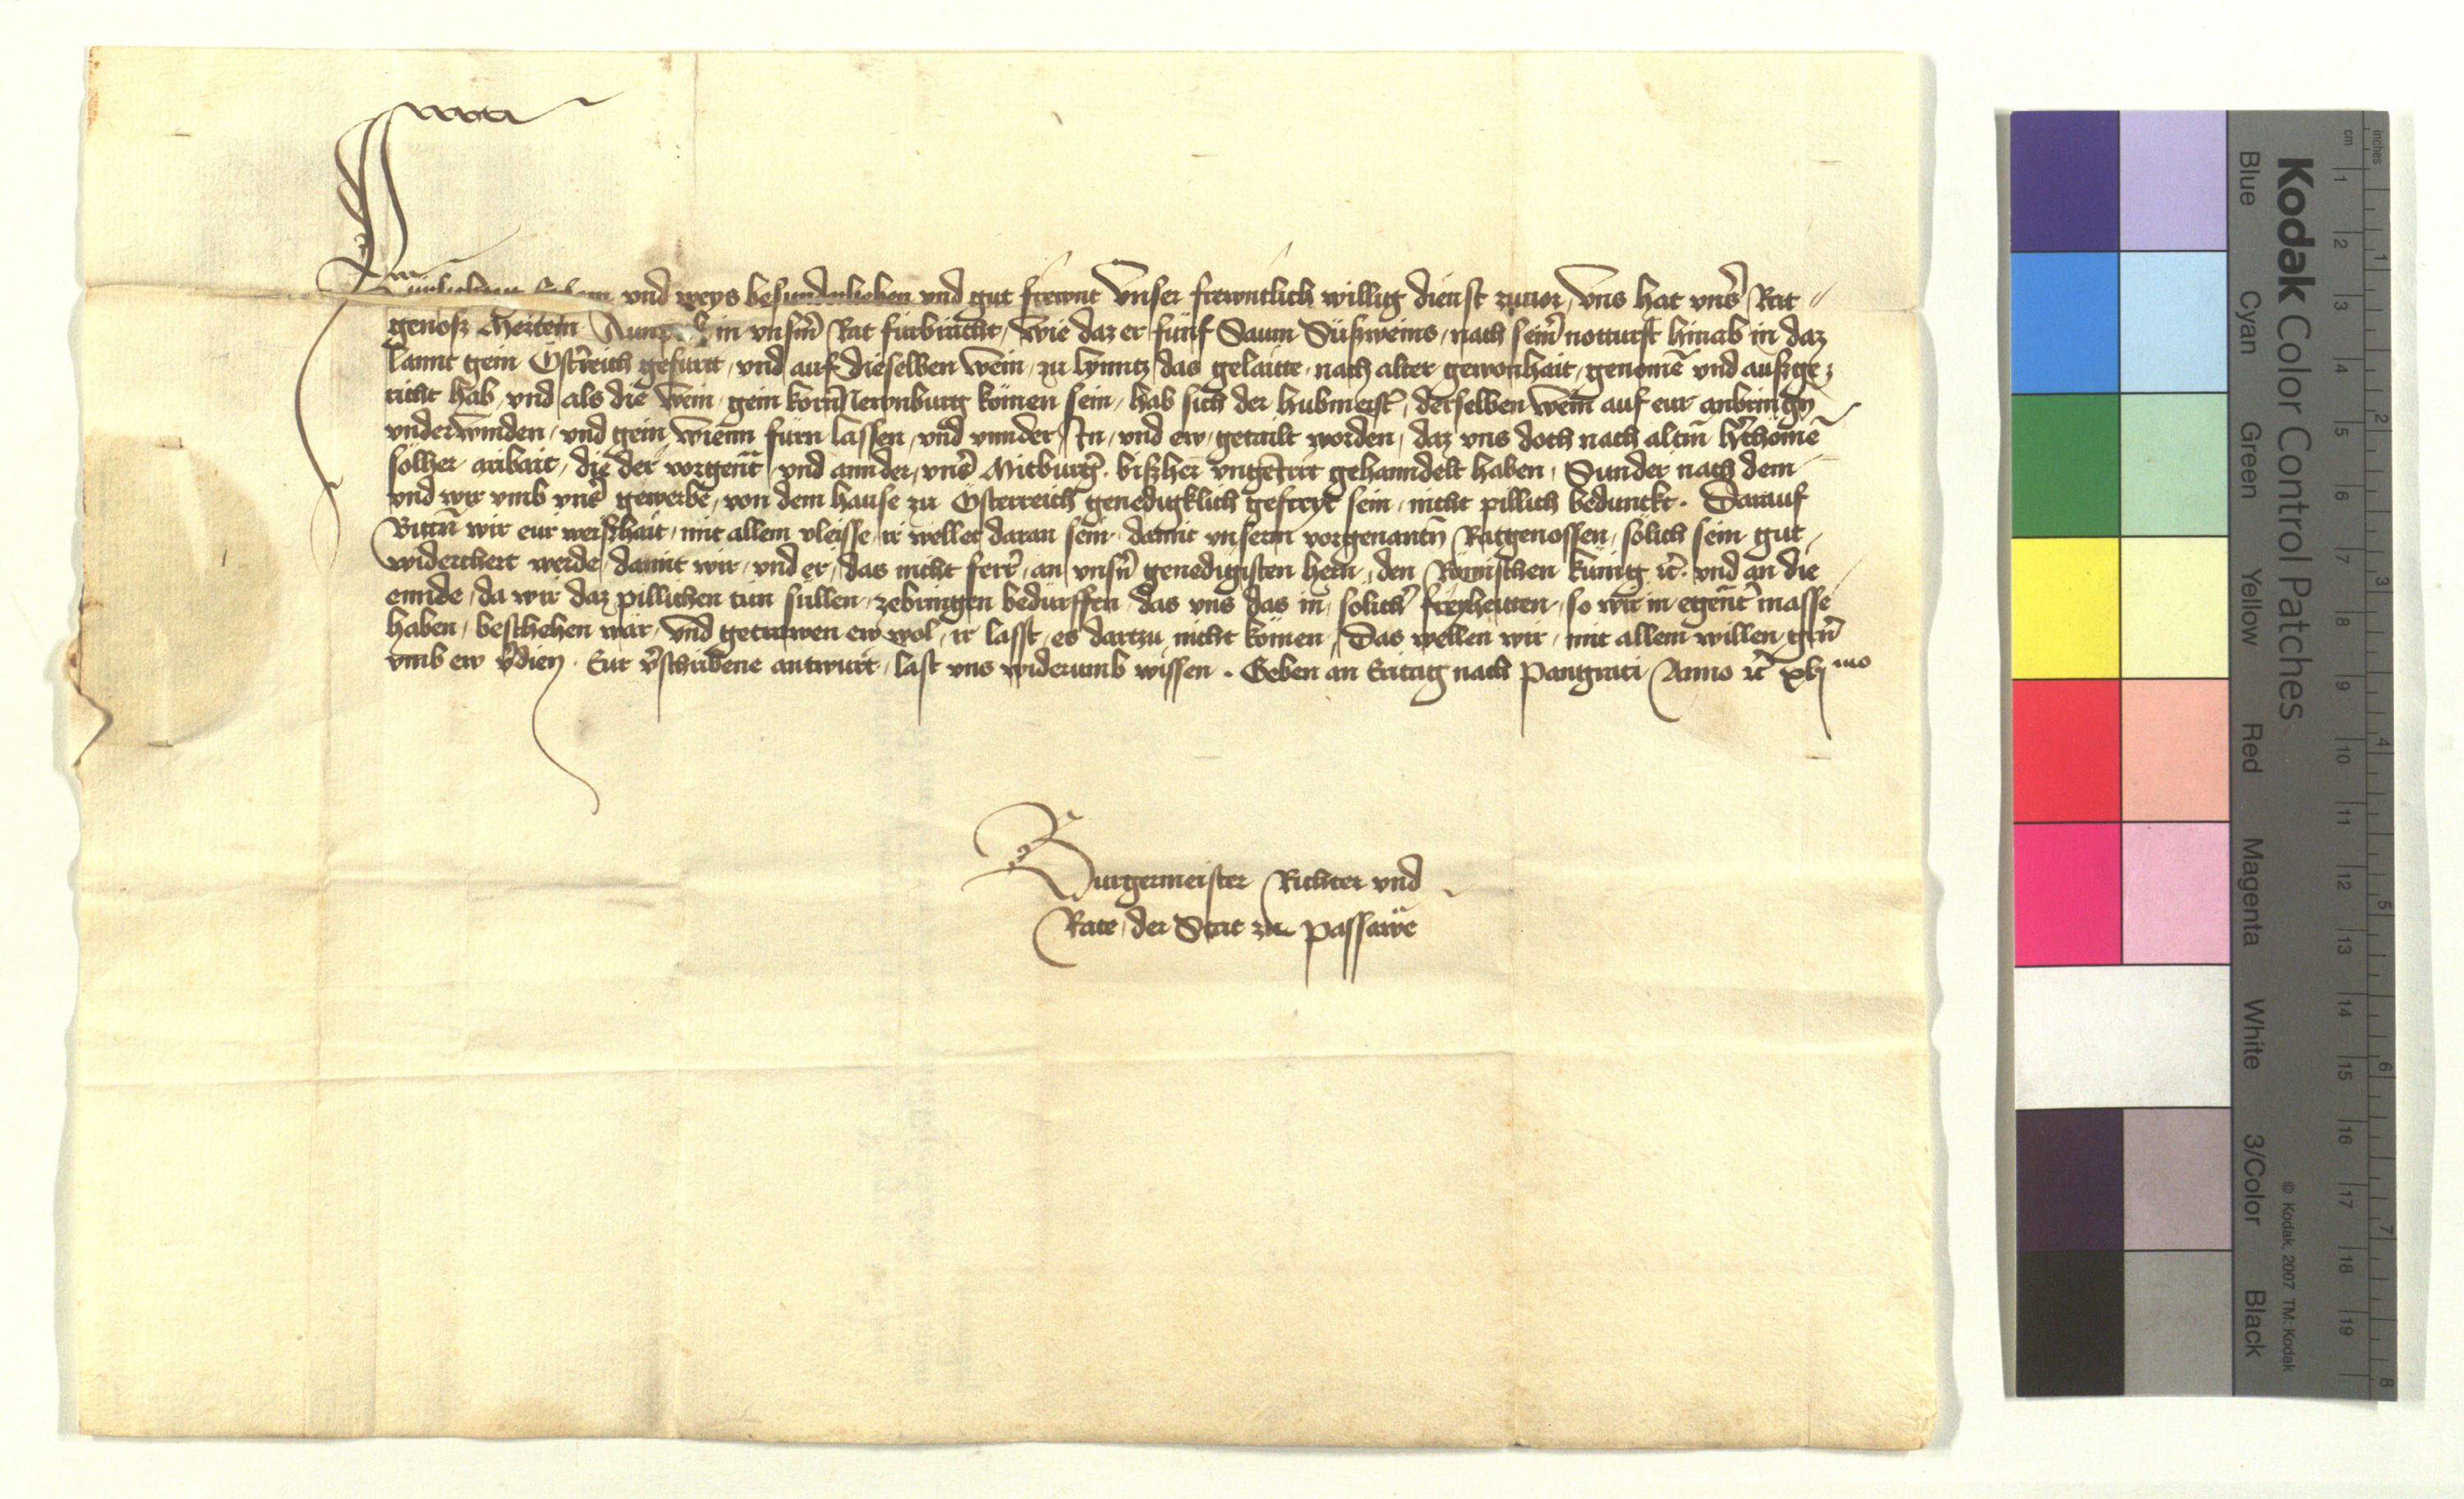 und weys besunderlieben und gut frewnt Unser frewntlich willig dienst zuuor, Uns hat unsr̄ Rat
genosz Mertein in unserm̄ Rat fürbracht, Wie daz er fünf Saum Süßweins, nach seinr̄ notturft hinab in daz
lannt gein Östrreich gefürt, und auf dieselben Wein, zu lynntz das gelaitte, nach alter gewonhait, genomē und auszge⸗
richt hab, und als die Wein, gein Kornn̄ewnburg kömen sein, hab sich der hubmeistr̄, derselben Wein auf eur anbringn̄
underwinden, und gein Wienn furn lassen, und unnder In, und ew, getailt worden, daz uns doch nach altm̄ hr̄chömē
solher aribait, die der vorgen̄t und annder, unsr̄ Mitburgr̄, biszher ungeirrt gehanndelt haben, Sunder nach dem
und wir umb unsr̄ gewerbe, von dem hause zu Österreich genedigklich gefreyt sein, nicht pillich bedunckt. Darauf
Bittn̄ wir eur weishait, mit allem vleisse, ir wellet daran sein, damit unserm vorgenantn̄ Ratgenossen, sölich sein gut,
widerchert werde, damit wir, und er, das nicht ferrr̄, an unsrn̄ genedigisten hern, den Römischen künig rc̄. und an die
ennde, da wir daz pillichen tün süllen, zebringen bedurffen, das uns das in, solichr̄ freyheiten, so wir in egen̄tr̄ masse
haben, beschehen wär, Und getrawen ew wol, ir lasst, es dartzu nicht kömen, Das wellen wir, mit allem willen, gern̄
umb ew vr̄dien̄. Eur vr̄schribene antwurt, last uns widerumb wissen. Geben an Eritag nach Pangratii Anno rc̄ xlj mo
Burgermeister Richter und
Rate, der Stat zu Passawe
Kodak Color Control Patches
Blue Cyan Green Yellow Red Magenta White 3/Color Black
© Kodak, 2007 TM: Kodak
cm 1 2 3 4 5 6 7 8 9 10 11 12 13 14 15 16 17 18 19
inches 1 2 3 4 5 6 7 8